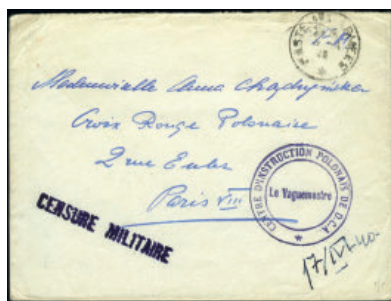 POSTE AUX ARMEES
Mademoiselle Anna
Croix Rouge Polonaise
2 rue Euler
Paris VIII
CENTRE D'INSTRUCTION POLONAIS DE D.C.A.
Le Vaguemestre
CENSURE MILITAIRE
17/IV-40.